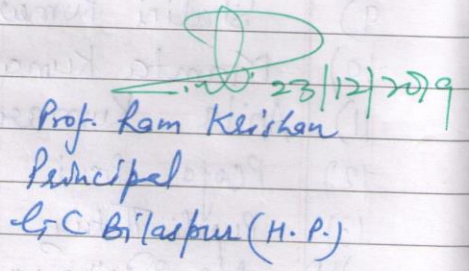 23/12/2019
Prof. Ram Krishan
Principal
G.C Bilaspur (H.P.)